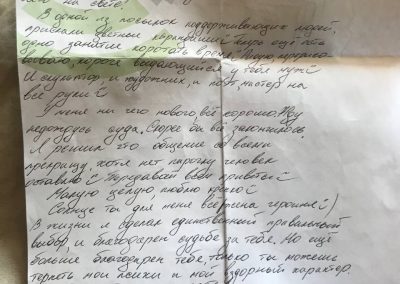 на свете!
В одной из посылок поддерживающих людей,
прислали цветные карандаши! Теперь ещё есть
одно занятие коротать время.
вышиваю, короче выдающийся у тебя муж!
И скульптор, и художник, и поэт, мастер на
все руки!
У меня ни чего нового, всё хорошо. Жду
недождусь суда. Скорее бы всё закончилось.
Я решил что общение со всеми
прекращу, хотя нет парочку человек
оставлю! Передавай всем приветы!
Милую целую люблю крепко!
Солнце ты для меня всё, жена героиня! :)
В жизни я сделал единственный правильный
выбор, и благодарен судьбе за тебя. Но ещё
больше благодарен тебе, только ты можешь
терпеть мои психи и мой вздорный характер.